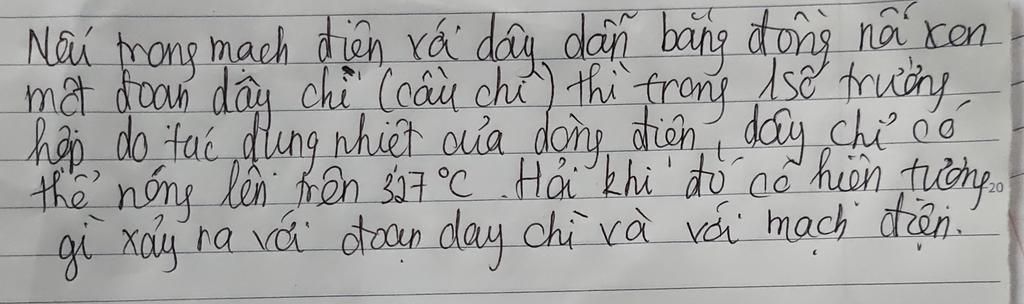 Nếu trong mạch điện với dây dẫn bằng đồng nối xen
một đoạn dây chì (cầu chì) thì trong 1số trường
hợp do tác dụng nhiệt của dòng điện, dây chì có
thể nóng lên trên 327 °C. Hỏi khi đó có hiện tượng
gì xảy ra với đoạn dây chì và với mạch điện.